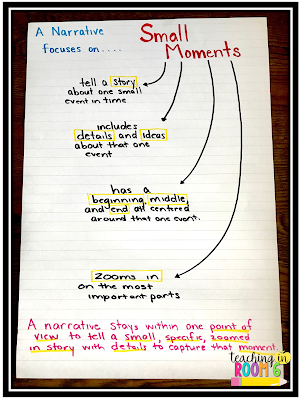 A Narrative
focuses on....
Small
Moments
tell a story
about one small
event in time
includes
details and ideas
about that one
event
has a
beginning, middle,
and end all centred
around that one event.
zooms in
on the most
important parts
A narrative stays within one point of
view to tell a small, specific, zoomed
in story with details to capture that moment.
teaching in
ROOM 6